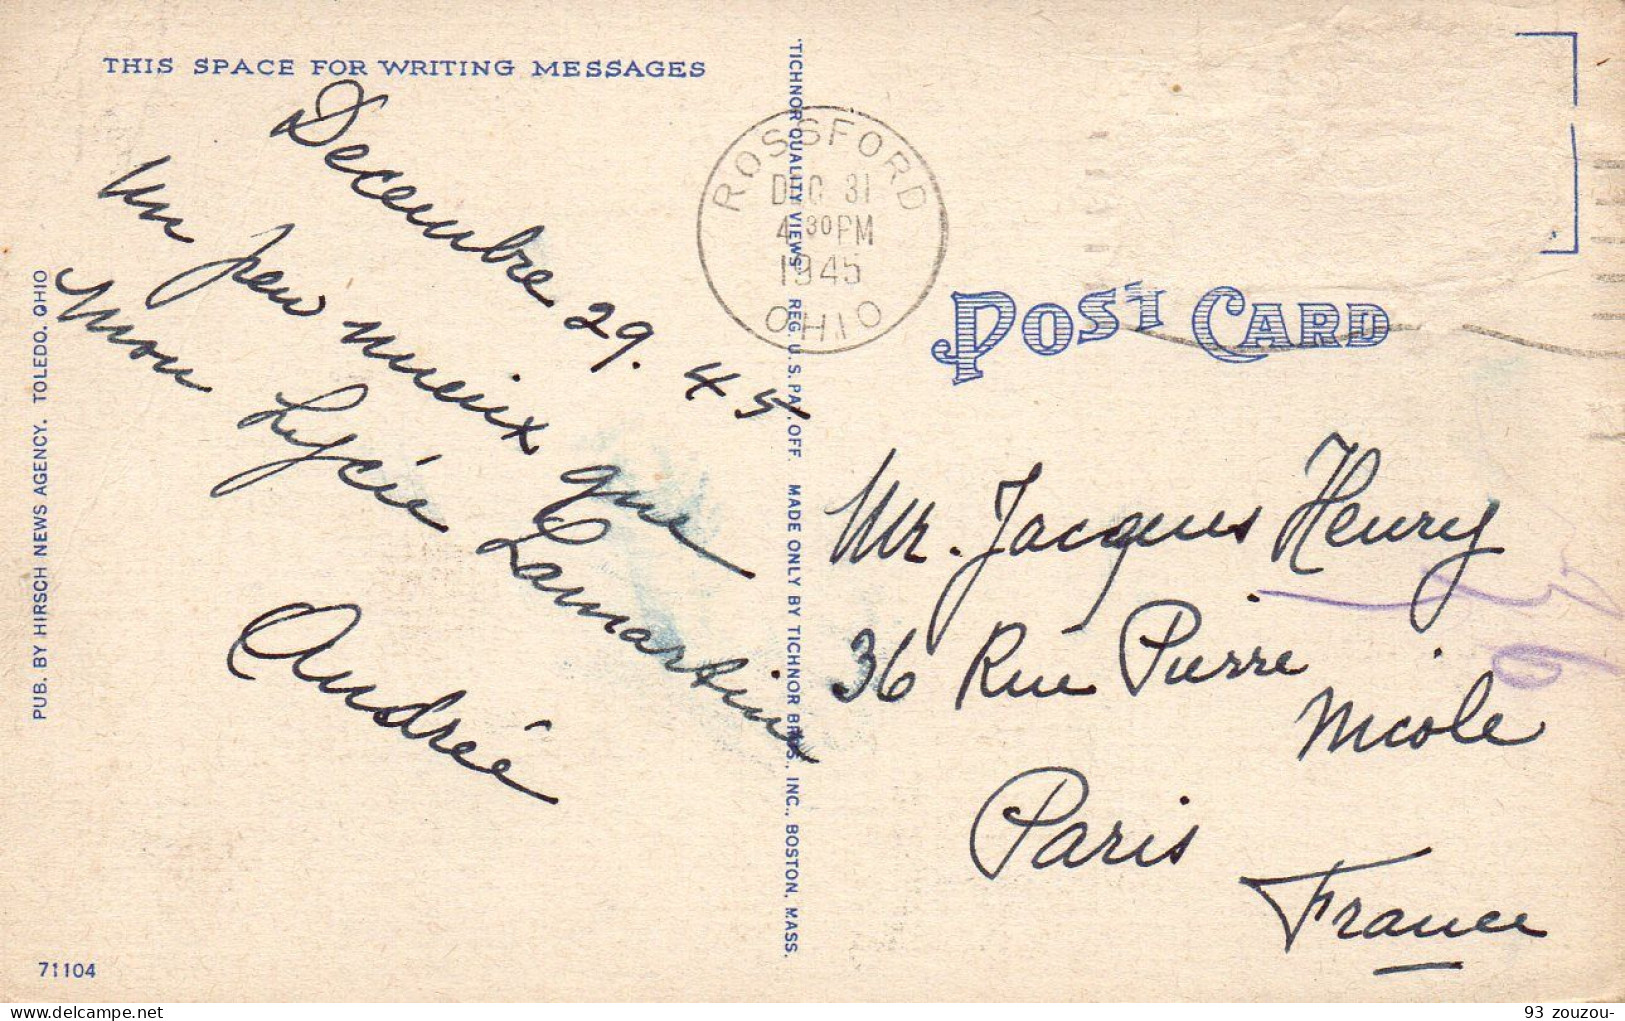 THIS SPACE FOR WRITING MESSAGES
Decembre 29. 45
Un peu mieux que
mon Lycée Lamartine
Andrée
PUB. BY HIRSCH NEWS AGENCY, TOLEDO, OHIO
71104
"TICHNOR QUALITY VIEWS" REG. U. S. PAT. OFF. MADE ONLY BY TICHNOR BROS., INC., BOSTON, MASS.
ROSSFORD
DEC 31
4 30 PM
1945
OHIO
POST CARD
Mr. Jacques Henry
36 Rue Pierre
Nicole
Paris
France
93 zouzou-